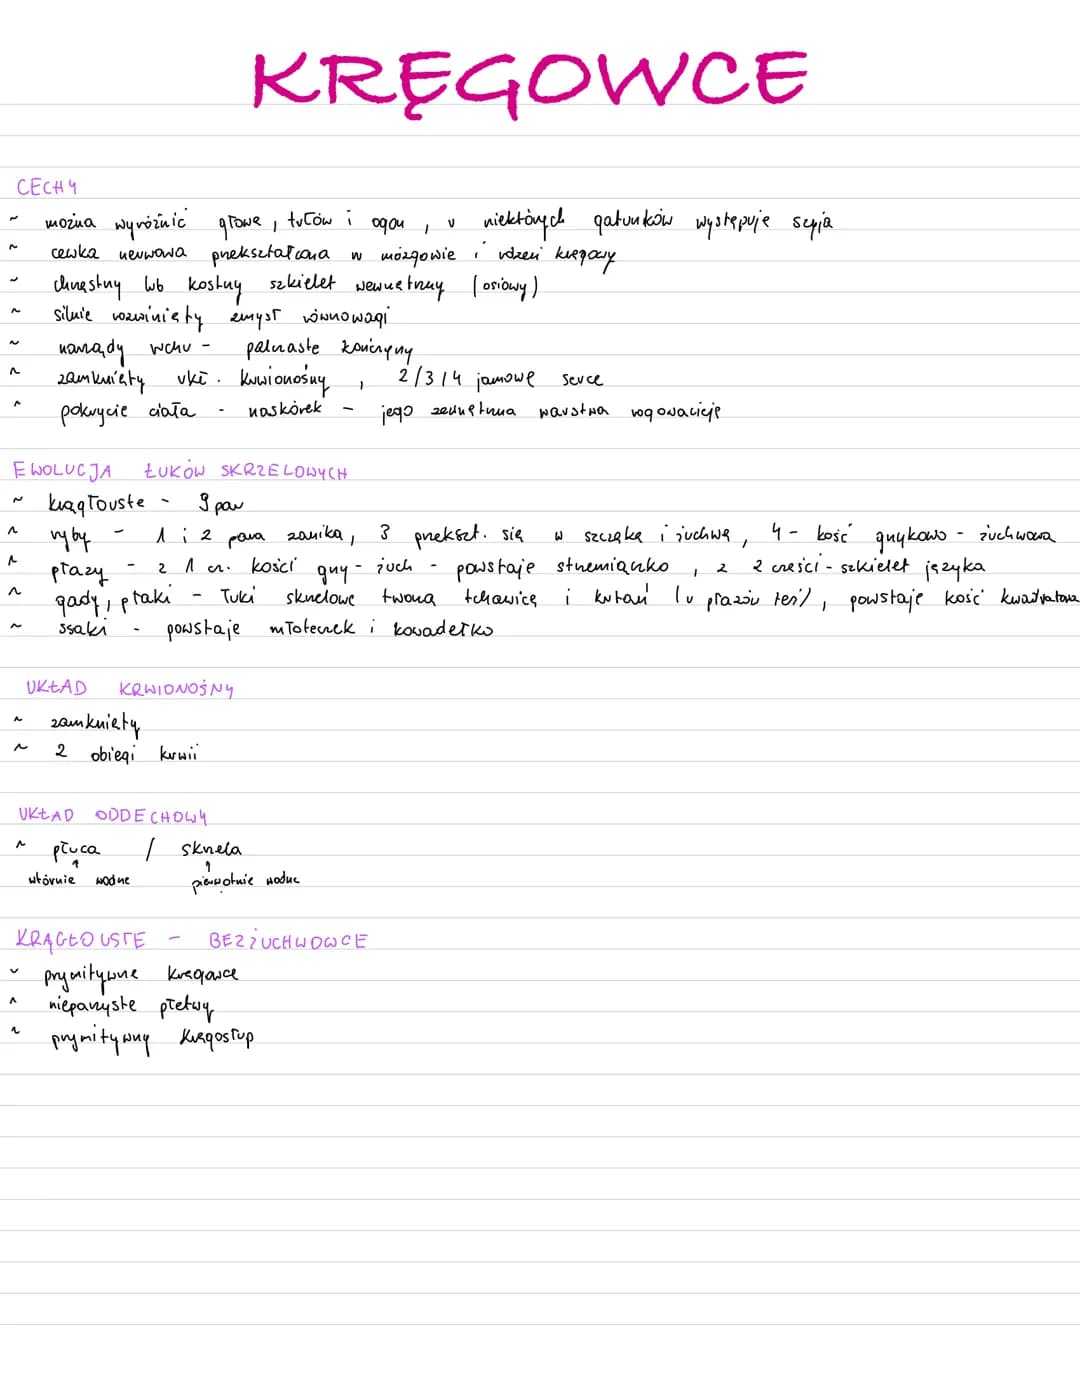 KRĘGOWCE
CECHY
~ można wyróżnić głowę, tułów i ogon, u niektórych gatunków występuje szyja
~ cewka nerwowa przekształcona w mózgowie i rdzeń kręgowy
~ chrzęstny lub kostny szkielet wewnętrzny (osiowy)
~ silnie rozwinięty zmysł równowagi
~ narządy ruchu - palczaste kończyny
~ zamknięty ukł. krwionośny, 2/3/4 jamowe serce
~ pokrycie ciała - naskórek - jego zewnętrzna warstwa rogowacieje
EWOLUCJA ŁUKÓW SKRZELOWYCH
~ krągłouste - 9 par
~ ryby - 1 i 2 para zanika, 3 przekszt. się w szczękę i żuchwę, 4 - kość gnykowo - żuchwowa
~ płazy - z 1 cz. kości gny - żuch - powstaje strzemiączko, z 2 części - szkielet języka
~ gady, ptaki - łuki skrzelowe tworzą tchawicę i krtań (u płazów też), powstaje kość kwadratowa
~ ssaki - powstaje młoteczek i kowadełko
UKŁAD KRWIONOŚNY
~ zamknięty
~ 2 obiegi krwii
UKŁAD ODDECHOWY
~ płuca / skrzela
wtórnie wodne pierwotnie wodne
KRĄGŁOUSTE - BEZŻUCHWOWCE
~ prymitywne kręgowce
~ nieparzyste płetwy
~ prymitywny kręgosłup